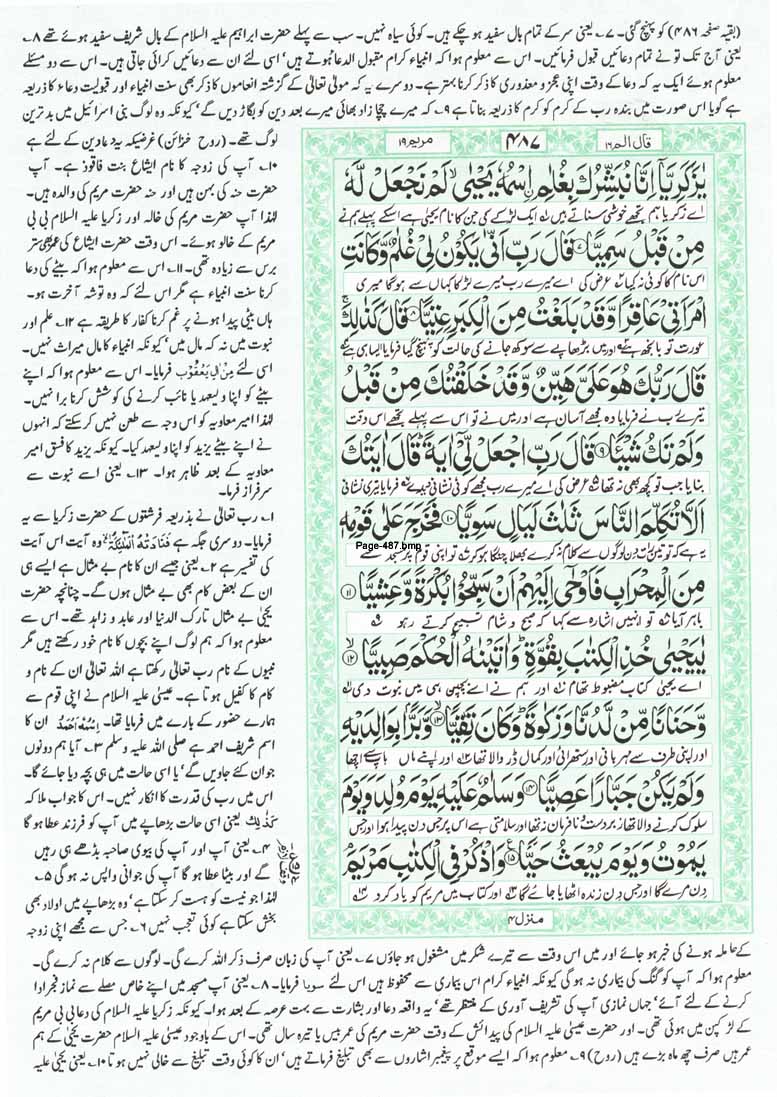 (بقیہ صفحہ ۴۸۶) کو پہنچ گئی۔ ۷۔ یعنی سر کے تمام بال سفید ہو چکے ہیں۔ کوئی سیاہ نہیں۔ سب سے پہلے حضرت ابراہیم علیہ السلام کے بال شریف سفید ہوئے تھے ۸۔
یعنی آج تک تو نے تمام دعائیں قبول فرمائیں۔ اس سے معلوم ہوا کہ انبیاء کرام مقبول الدعا ہوتے ہیں' اسی لئے ان سے دعائیں کرائی جاتی ہیں۔ اس سے دو مسئلے
معلوم ہوئے ایک یہ کہ دعا کے وقت اپنی عجز و معذوری کا ذکر کرنا بہتر ہے۔ دوسرے یہ کہ مولیٰ تعالیٰ کے گزشتہ انعاموں کا ذکر بھی سنت انبیاء اور قبولیت دعاء کا ذریعہ
ہے گویا اس صورت میں بندہ رب کے کرم کو کرم کا ذریعہ بناتا ہے ۹۔ کہ میرے چچا زاد بھائی میرے بعد دین کو بگاڑ دیں گے' کیونکہ وہ لوگ بنی اسرائیل میں بدترین
لوگ تھے۔ (روح خزائن) غرضیکہ یہ دعا دین کے لئے ہے
۱۰۔ آپ کی زوجہ کا نام ایشاع بنت فاقوذ ہے۔ آپ
حضرت حنہ کی بہن ہیں اور حنہ حضرت مریم کی والدہ ہیں۔
لہٰذا آپ حضرت مریم کی خالہ اور زکریا علیہ السلام بی بی
مریم کے خالو ہوئے۔ اس وقت حضرت ایشاع کی عمر بھی ستر
برس سے زیادہ تھی۔ ۱۱۔ اس سے معلوم ہوا کہ بیٹے کی دعا
کرنا سنت انبیاء ہے مگر اس لئے کہ وہ توشہ آخرت ہو۔
ہاں بیٹی پیدا ہونے پر غم کرنا کفار کا طریقہ ہے ۱۲۔ علم اور
نبوت میں نہ کہ مال میں' کیونکہ انبیاء کا مال میراث نہیں۔
اسی لئے مِنْ اٰلِ یَعْقُوْبَ فرمایا۔ اس سے معلوم ہوا کہ اپنے
بیٹے کو اپنا ولیعہد یا نائب کرنے کی کوشش کرنا برا نہیں۔
لہٰذا امیر معاویہ کو اس وجہ سے طعن نہیں کر سکتے کہ انہوں
نے اپنے بیٹے یزید کو اپنا ولیعہد کیا۔ کیونکہ یزید کا فسق امیر
معاویہ کے بعد ظاہر ہوا۔ ۱۳۔ یعنی اسے نبوت سے
سرفراز فرما۔
۱۔ رب تعالیٰ نے بذریعہ فرشتوں کے حضرت زکریا سے یہ
فرمایا۔ دوسری جگہ ہے فَنَادَتْهُ الْمَلٰٓئِكَةُ وہ آیت اس آیت
کی تفسیر ہے ۲۔ یعنی جیسے ان کا نام بے مثال ہے ایسے ہی
ان کے بعض کام بھی بے مثال ہوں گے۔ چنانچہ حضرت
یحییٰ بے مثال تارک الدنیا اور عابد و زاہد تھے۔ اس سے
معلوم ہوا کہ ہم لوگ اپنے بچوں کا نام خود رکھتے ہیں مگر
نبیوں کے نام رب تعالیٰ رکھتا ہے اللہ تعالیٰ ان کے نام و
کام کا کفیل ہوتا ہے۔ عیسیٰ علیہ السلام نے اپنی قوم سے
ہمارے حضور کے بارے میں فرمایا تھا۔ اِسْمُهٗۤ اَحْمَدُ ان کا
اسم شریف احمد ہے صلی اللہ علیہ وسلم ۳۔ آیا ہم دونوں
جوان کئے جاویں گے' یا اسی حالت میں ہی بچہ دیا جائے گا۔
اس میں رب کی قدرت کا انکار نہیں۔ اس کا جواب ملا کہ
كَذٰلِكَ یعنی اسی حالت بڑھاپے میں آپ کو فرزند عطا ہو گا
۴۔ یعنی آپ اور آپ کی بیوی صاحبہ بڈھے ہی رہیں
گے اور بیٹا عطا ہو گا آپ کی جوانی واپس نہ ہو گی ۵۔
لہٰذا جو نیست کو ہست کر سکتا ہے' وہ بڑھاپے میں اولاد بھی
بخش سکتا ہے کوئی تعجب نہیں ۶۔ جس سے مجھے اپنی زوجہ
قال الم ۱۶
۴۸۷
مریم ۱۹
یٰزَكَرِیَّاۤ اِنَّا نُبَشِّرُكَ بِغُلٰمِ ِ۟اسْمُهٗ یَحْیٰى ۙ لَمْ نَجْعَلْ لَّهٗ
اے زکریا ہم تجھے خوشی سناتے ہیں ۱ ایک لڑکے کی جن کا نام یحییٰ ہے اسکے پہلے ہم نے
مِنْ قَبْلُ سَمِیًّا ۷ قَالَ رَبِّ اَنّٰى یَكُوْنُ لِیْ غُلٰمٌ وَّ كَانَتِ
اس نام کا کوئی نہ کیا ۲ عرض کی اے میرے رب میرے لڑکا کہاں سے ہو گا میری
امْرَاَتِیْ عَاقِرًا وَّ قَدْ بَلَغْتُ مِنَ الْكِبَرِ عِتِیًّا ۸ قَالَ كَذٰلِكَ ۚ
عورت تو بانجھ ہے اور میں بڑھاپے سے سوکھ جانے کی حالت کو پہنچ گیا فرمایا ایسا ہی ہے
قَالَ رَبُّكَ هُوَ عَلَیَّ هَیِّنٌ وَّ قَدْ خَلَقْتُكَ مِنْ قَبْلُ
تیرے رب نے فرمایا وہ مجھے آسان ہے اور میں نے تو اس سے پہلے تجھے اس وقت
وَ لَمْ تَكُ شَیْـًٔا ۹ قَالَ رَبِّ اجْعَلْ لِّیْۤ اٰیَةً ؕ قَالَ اٰیَتُكَ
بنایا جب تو کچھ بھی نہ تھا ۵ عرض کی اے میرے رب مجھے کوئی نشانی دیدے ۶ فرمایا تیری نشانی
اَلَّا تُكَلِّمَ النَّاسَ ثَلٰثَ لَیَالٍ سَوِیًّا ۱۰ فَخَرَجَ عَلٰى قَوْمِهٖ
Page-487.bmp
یہ ہے کہ تو تین رات دن لوگوں سے کلام نہ کرے بھلا چنگا ہو کر ۷ تو اپنی قوم پر مسجد سے
مِنَ الْمِحْرَابِ فَاَوْحٰۤى اِلَیْهِمْ اَنْ سَبِّحُوْا بُكْرَةً وَّ عَشِیًّا ۱۱
باہر آیا ۸ تو انہیں اشارہ سے کہا کہ صبح و شام تسبیح کرتے رہو ۹
یٰیَحْیٰى خُذِ الْكِتٰبَ بِقُوَّةٍ ؕ وَ اٰتَیْنٰهُ الْحُكْمَ صَبِیًّا ۱۲
اے یحییٰ کتاب مضبوط تھام ۱۰ اور ہم نے اسے بچپن ہی میں نبوت دی ۱۱
وَّ حَنَانًا مِّنْ لَّدُنَّا وَ زَكٰوةً ؕ وَ كَانَ تَقِیًّا ۱۳ وَّ بَرًّۢا بِوَالِدَیْهِ
اور اپنی طرف سے مہربانی اور ستھرائی اور کمال ڈر والا تھا ۱۲ اور اپنے ماں باپ سے اچھا
وَ لَمْ یَكُنْ جَبَّارًا عَصِیًّا ۱۴ وَ سَلٰمٌ عَلَیْهِ یَوْمَ وُلِدَ وَ یَوْمَ
سلوک کرنے والا تھا زبردست و نافرمان نہ تھا اور سلامتی ہے اس پر جس دن پیدا ہوا اور جس
یَمُوْتُ وَ یَوْمَ یُبْعَثُ حَیًّا ۱۵ وَ اذْكُرْ فِی الْكِتٰبِ مَرْیَمَ
دن مرے گا اور جس دن زندہ اٹھایا جائے گا ۱۳ اور کتاب میں مریم کو یاد کرو ۱۴
منزل ۴
کے حاملہ ہونے کی خبر ہو جائے اور میں اس وقت سے تیرے شکر میں مشغول ہو جاؤں ۷۔ یعنی آپ کی زبان صرف ذکر اللہ کرے گی۔ لوگوں سے کلام نہ کرے گی۔
معلوم ہوا کہ آپ کو گنگ کی بیماری نہ ہو گی کیونکہ انبیاء کرام اس بیماری سے محفوظ ہیں اس لئے سویا فرمایا۔ ۸۔ یعنی آپ مسجد میں اپنے خاص مصلے سے نماز فجر ادا
کرنے کے لئے آئے' جہاں نمازی آپ کی تشریف آوری کے منتظر تھے' یہ واقعہ دعا اور بشارت سے بہت عرصہ کے بعد ہوا۔ کیونکہ زکریا علیہ السلام کی دعا بی بی مریم
کے لڑکپن میں ہوئی تھی۔ اور حضرت عیسیٰ علیہ السلام کی پیدائش کے وقت حضرت مریم کی عمر بیس یا تیرہ سال تھی۔ اس کے باوجود عیسیٰ علیہ السلام حضرت یحییٰ کے ہم
عمر ہیں صرف چھ ماہ بڑے ہیں (روح) ۹۔ معلوم ہوا کہ ایسے موقع پر پیغمبر اشاروں سے بھی تبلیغ فرماتے ہیں' ان کا کوئی وقت تبلیغ سے خالی نہیں ہوتا ۱۰۔ یعنی یحییٰ علیہ